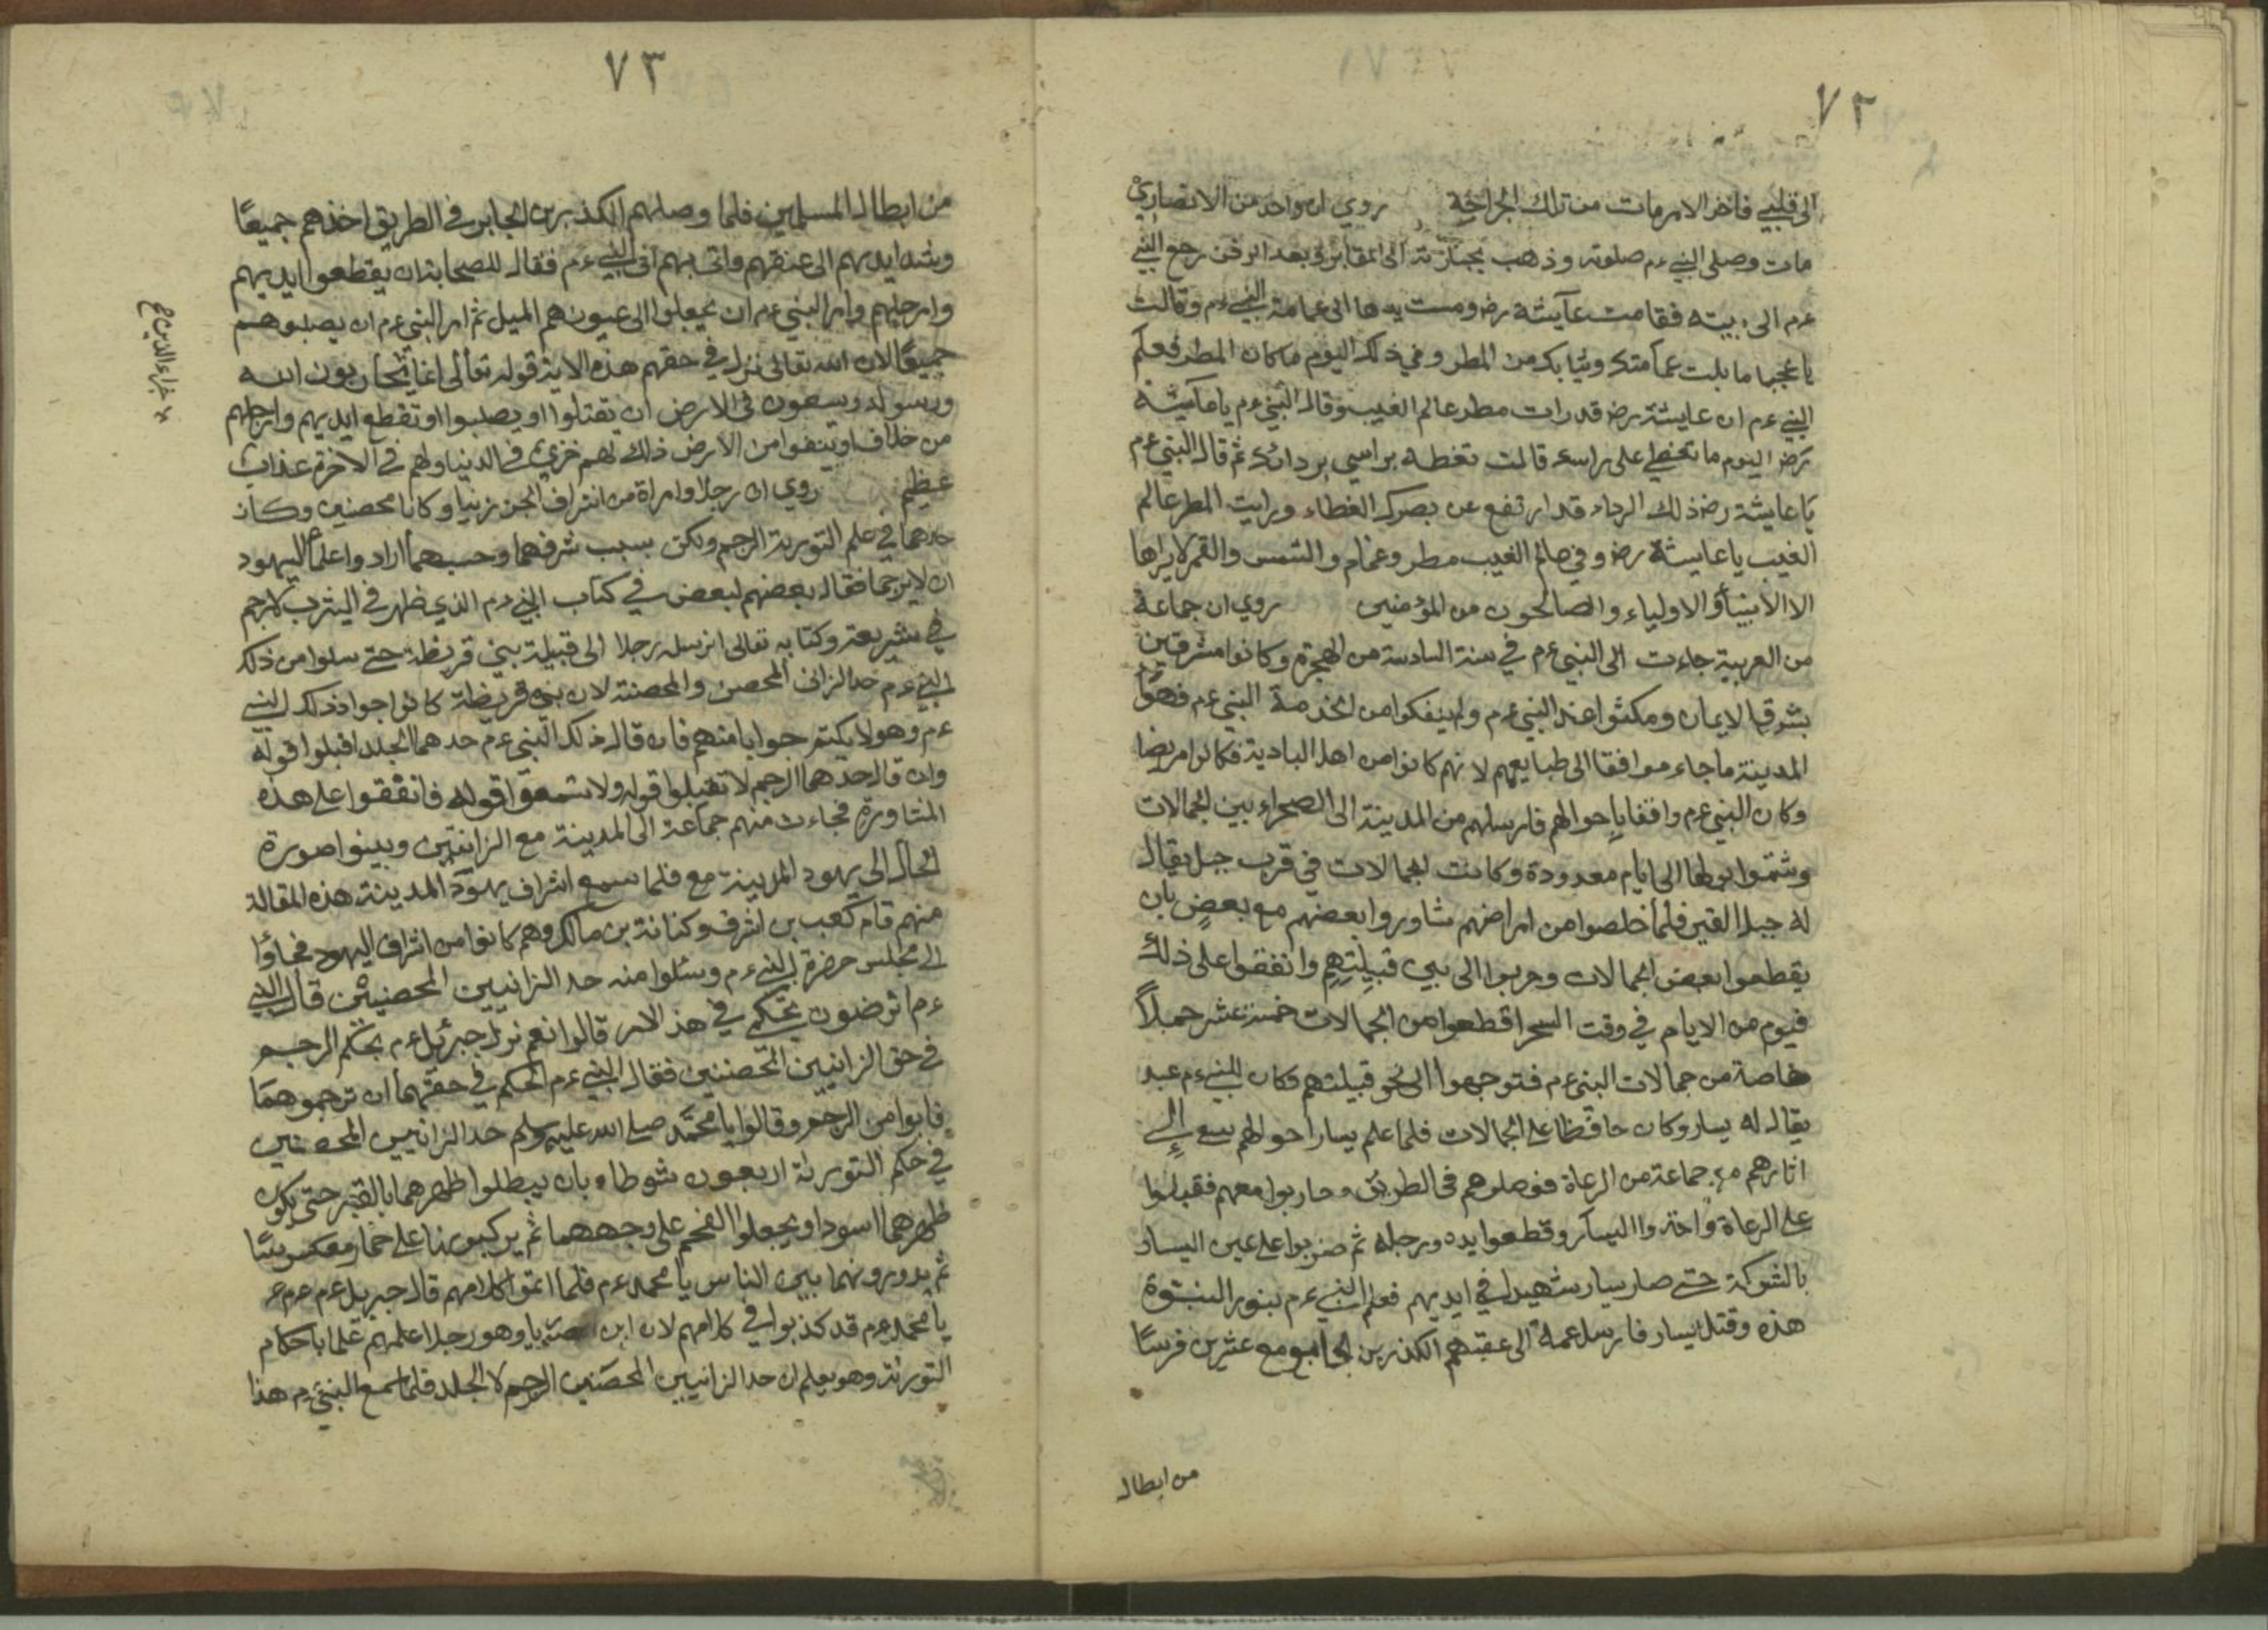 ٧٢
الى قلبي فاخر الامر مات من تلك الجراحة روي ان واحد من الانصاري
مات وصلى النبي ءم صلوته وذهب بجنازته الى المقابر وبعد الدفن رجع النبي
ءم الى بيته فقامت عآيشة رض ومست يدها الى عمامة النبي ءم وقالت
يا عجبا ما بلت عمامتك وثيابك من المطر وفي ذلك اليوم ما كان المطر فعلم
النبي ءم ان عايشة رض قد رات مطر عالم الغيب وقال النبي ءم يا عآيشة
رض اليوم ما تحفظي على راسك قالت تغطه براسي بردائك ثم قال النبي ءم
يا عايشة رض ذلك الرداء قد ارتفع عن بصرك الغطاء ورايت المطر عالم
الغيب يا عايشة رض وفي عالم الغيب مطر وغمام والشمس والقمر لا يراها
الا الانبيآؤ والاولياء والصالحون من المؤمنين روي ان جماعة
من العربية جاءت الى النبي ءم في سنة السادسة من الهجرة وكانوا مشرقين
بشرق الايمان ومكثوا عند النبي ءم ولم ينفكوا من الخدمة النبي ءم فهوآء
المدينة ما جاء موافقا الى طبايعهم لانهم كانوا من اهل البادية فكانوا مريضا
وكان النبي ءم واقفا باحوالهم فارسلهم من المدينة الى الصحراء بين الجمالات
وشتموا بولها الى ايام معدودة وكانت الجمالات في قرب جبل يقال
له جبل القين فلما خلصوا من امراضهم شاوروا بعضهم مع بعض بان
يقطعوا بعض الجمالات وهربوا الى بيي قبيلتهم واتفقوا على ذلك
فيوم من الايام في وقت السحر اقطعوا من الجمالات خمسة عشر جملاً
خاصة من جمالات النبي ءم فتوجهوا الى نحو قبيلتهم فكان للنبي ءم عبد
يقال له يسار وكان حافظا على الجمالات فلما علم يسار احوالهم سع الي
اثارهم مع جماعة من الرعاة فوصلوهم في الطريق وحاربوا معهم فقبلوا
على الرعاة واخذوا اليسار وقطعوا يده ورجله ثم ضربوا على عين اليسار
بالشوكة حتى صار يسار شهيدا في ايديهم فعلم النبي ءم بنور النبوة
هذه وقتل يسار فارسل عمه الى عقبهم الكذر بن الجابر مع عشرين فرسًا
من ابطال
٧٣
من ابطال المسلمين فلما وصلهم الكذر بن الجابر في الطريق اخذهم جميعًا
وشد ايديهم الى عنقهم واتى بهم الى النبي ءم فقال للصحابة ان يقطعوا ايديهم
وارجلهم وامر النبي ءم ان يجعلوا الى عيونهم الميل ثم امر النبي ءم ان يصلبوهم
جميعًا لان الله تعالى نزل في حقهم هذه الاية قوله تعالى انما يحاربون الله
ورسوله ويسعون في الارض ان يقتلوا او يصلبوا او تقطع ايديهم وارجلهم
من خلاف او ينفوا من الارض ذلك لهم خزي في الدنيا ولهم في الاخرة عذاب
عظيم روي ان رجلا وامراة من اشراف زنيا وكانا محصنين وكان
حدهما في علم التورية الرجم ولكن بسبب شرفهما وحسبهما ارادوا علماء اليهود
ان لا يرجما فقال بعضهم لبعض في كتاب النبي ءم الذي ظهر في اليثرب لا رجم
في شريعته وكتابه تعالى ارسله رجلا الى قبيلة بني قريظة حتى سلوا من ذلك
النبي ءم حد الزاني المحصن والمحصنة لان بني قريظة كانوا جوا ذلك النبي
ءم وهو لا يكتم جوابا منهم فان قال ذلك النبي ءم حدهما الجلد اقبلوا قوله
وان قال حدهما الرجم لا تقبلوا قوله ولا تسمعوا قوله فاتفقوا على هذه
المشاورة فجاءت منهم جماعة الى المدينة مع الزانيين وبينوا صورة
الحال الى يهود المدينة مع فلما سمع اشراف يهود المدينة هذه المقالة
منهم قام كعب بن اشرف وكنانة بن مالك وهم كانوا من اشراف اليهود فجاؤا
الى مجلس حضرة النبي ءم وسئلوا منه حد الزانيين المحصنين قال النبي
ءم اترضون بحكمي في هذ الامر قالوا نعم نزل جبرئيل ءم بحكم الرجم
في حق الزانيين المحصنين فقال النبي ءم الحكم في حقهما ان ترجموهما
فابوا من الرجم وقالوا يا محمد صلى الله عليه وسلم حد الزانيين المحصنين
في حكم التورية اربعون شوطا بان يبطلوا ظهرهما بالقير حتى يكون
ظهرهما اسود او يجعلوا الفحم على وجههما ثم يركبونها على حمار معكوسا
ثم يدورونهما بين الناس يا محمد ءم فلما اتموا كلامهم قال جبريل ءم
يا محمد ءم قد كذبوا في كلامهم لان ابن صوريا وهو رجل اعلمهم علما باحكام
التورية وهو يعلم ان حد الزانيين المحصنين الرجم لا الجلد فلما سمع النبي ءم هذا